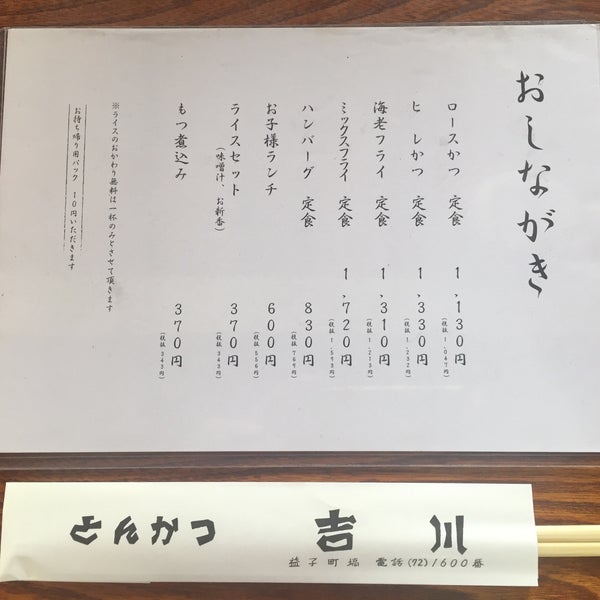 おしながき
ロースかつ 定食 1,130円
(税抜 1,047円)
ヒレかつ 定食 1,330円
(税抜 1,232円)
海老フライ 定食 1,310円
(税抜 1,213円)
ミックスフライ 定食 1,720円
(税抜 1,593円)
ハンバーグ 定食 830円
(税抜 769円)
お子様ランチ 600円
(税抜 556円)
ライスセット 370円
(味噌汁、お新香)
(税抜 343円)
もつ煮込み 370円
(税抜 343円)
※ライスのおかわり無料は一杯のみとさせて頂きます
お持ち帰り用パック 10円いただきます
とんかつ 吉川
益子町塙 電話(72)1600番